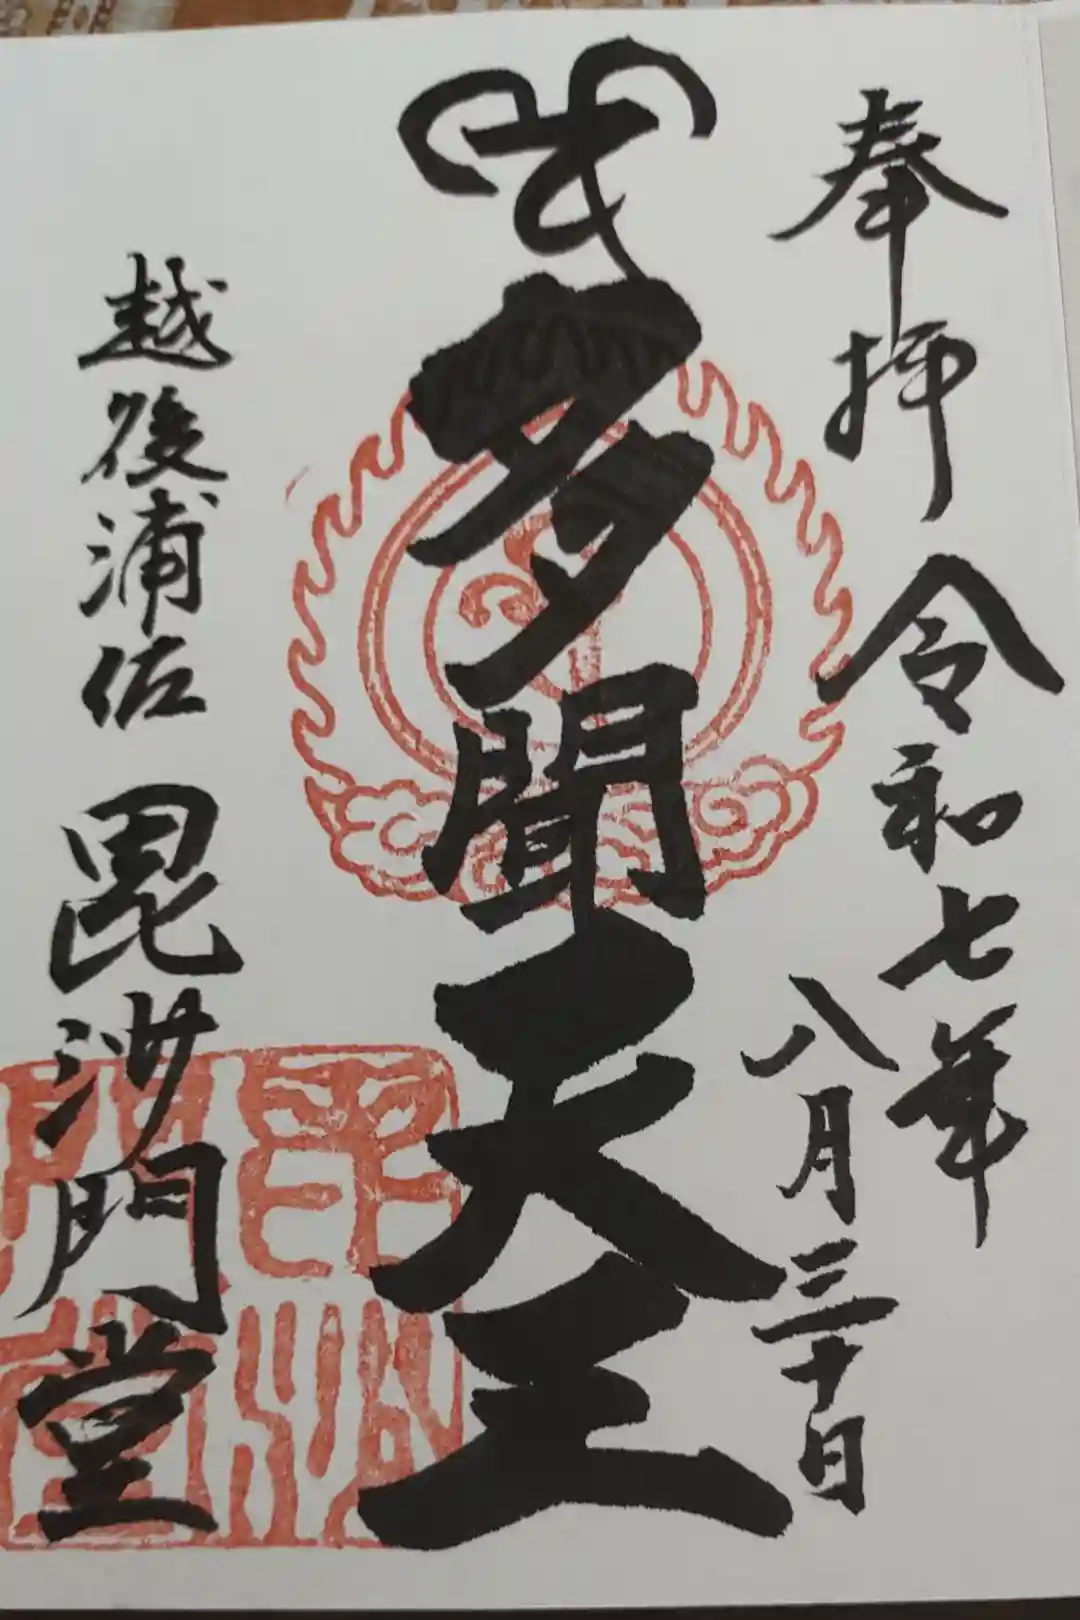 奉拝
令和七年
八月三十日
多聞天王
越後浦佐
毘沙門堂
毘沙門堂